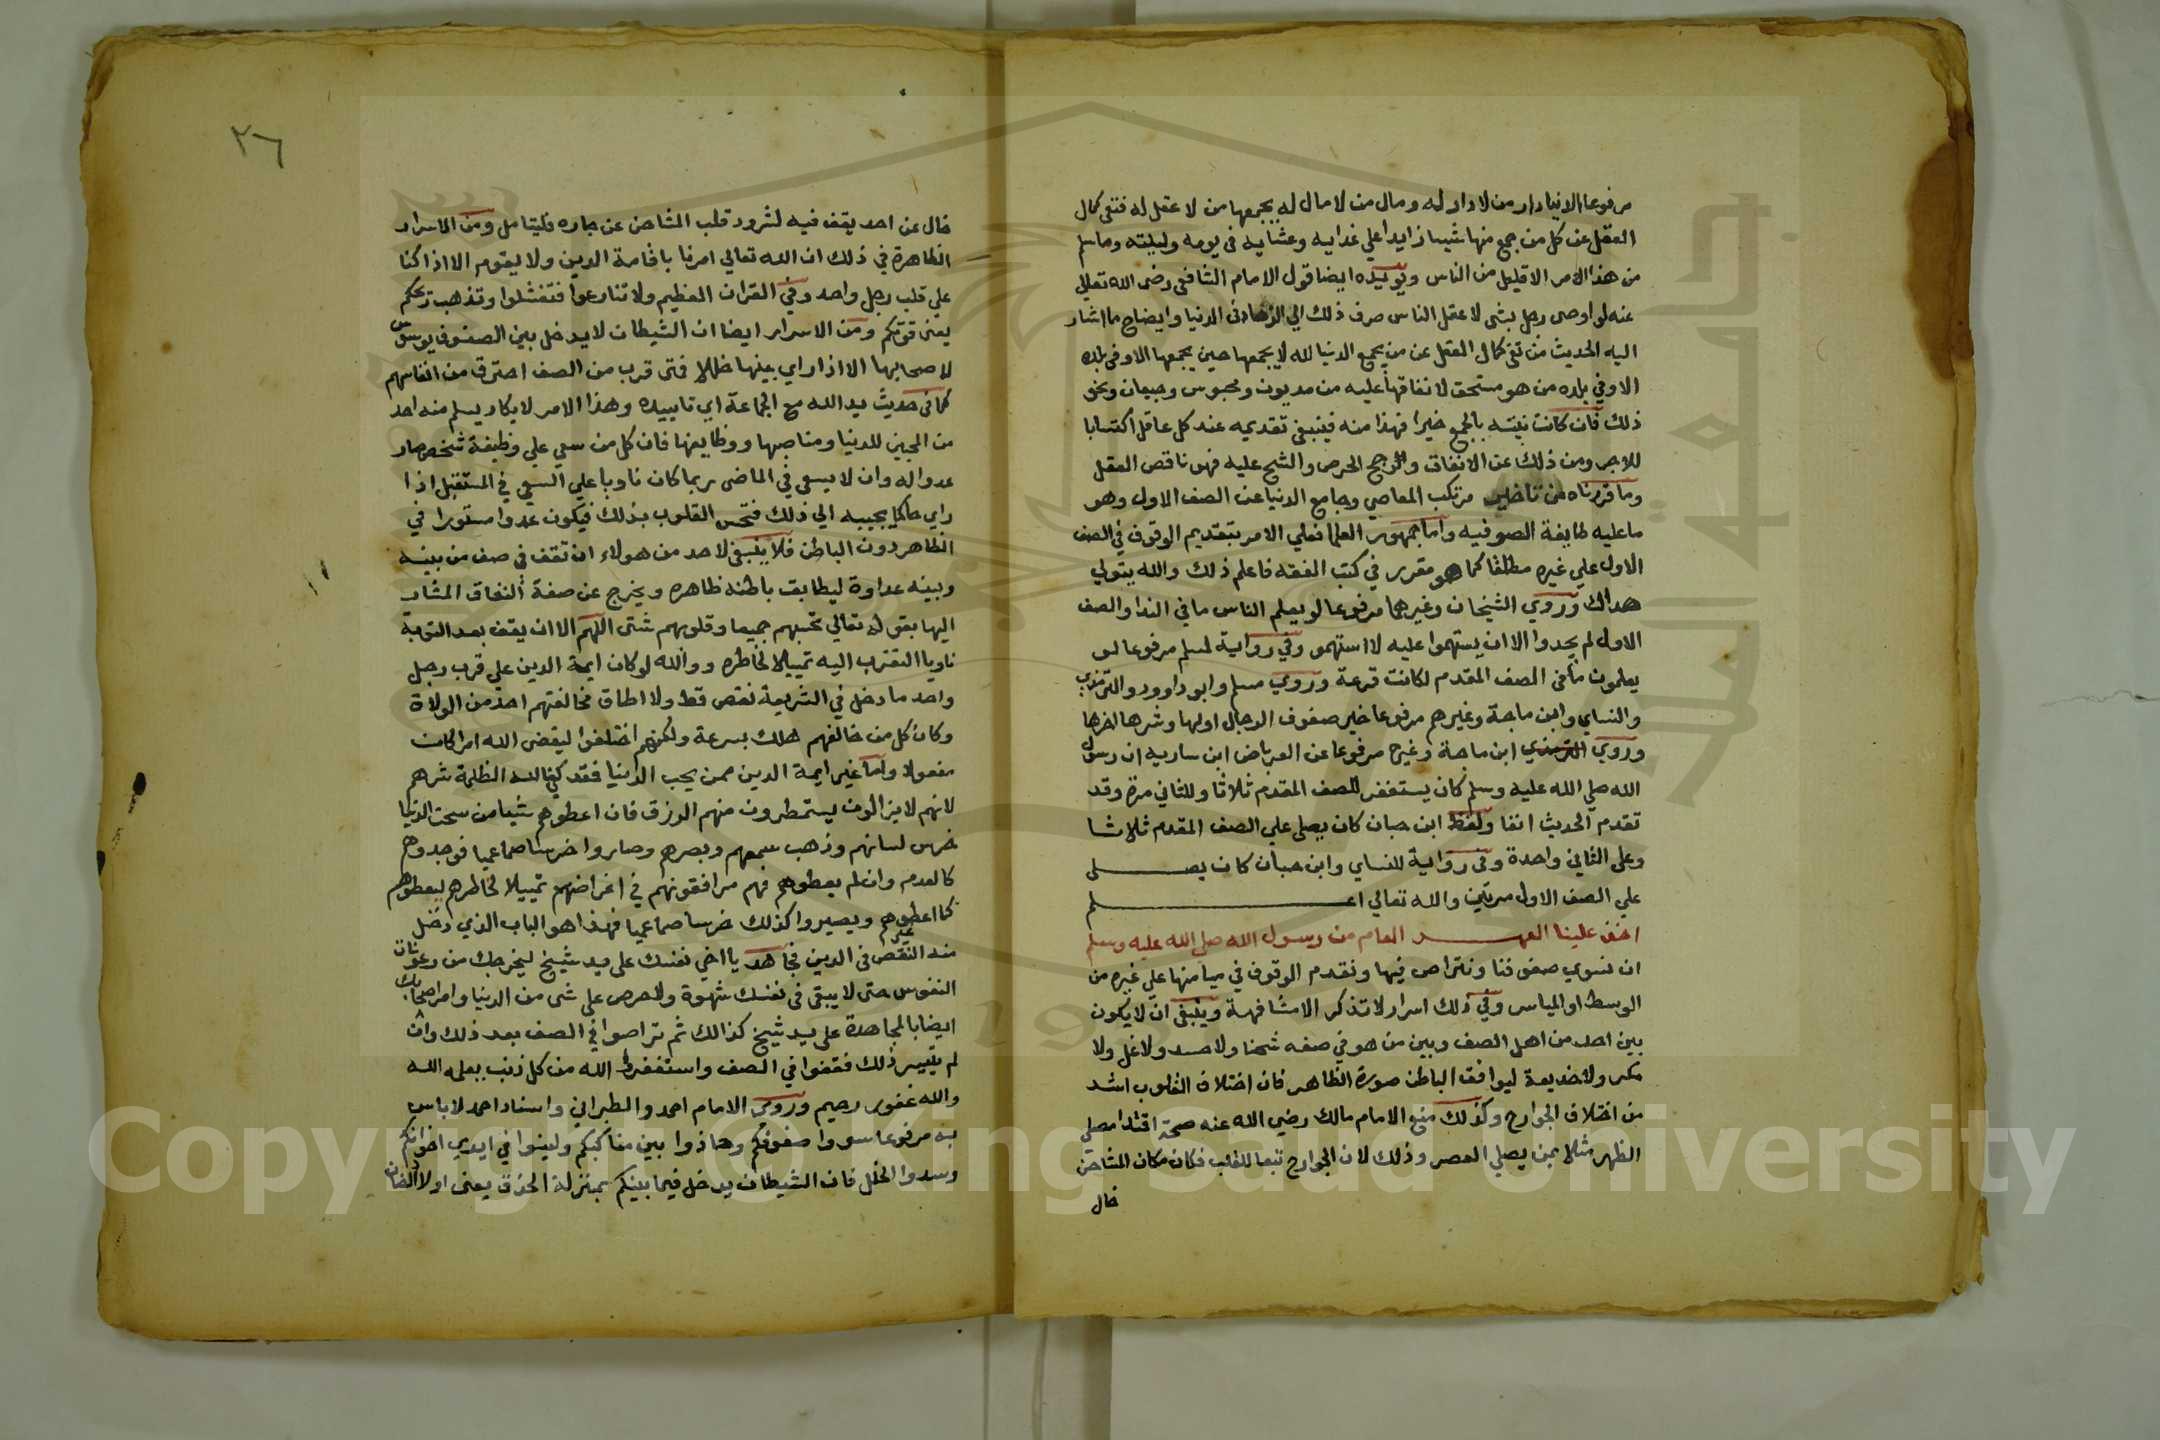 مرفوعا الدنيا دار من لا دار له ومال من لا مال له يجمعها من لا عقل له فنفى كمال
العقل عن كل من جمع منها شيا زايدا علي غدايه وعشايه في يومه وليلته وما سلم
من هذا الامر الا قليل من الناس ويويده ايضا قول الامام الشافعي رضى الله تعالي
عنه لو اوصى رجل بشى لاعقل الناس صرف ذلك الي الزهاد فى الدنيا وايضاح ما اشار
اليه الحديث من نفى كمال العقل عن من يجمع الدنيا لله لا يجمعها حين يجمعها الا وفى بلده
الا وفي بلده من هو مستحق لانفاقها عليه من مديون ومحبوس وجيعان ونحو
ذلك فان كانت نيته بالجمع خيرا فهذا منه فينبغى تقديمه عند كل عاقل اكتسابا
للاجر ومن ذلك عن الانفاق والرجح الحرص والشح عليه فهو ناقص العقل
وما قررناه من تاخير مرتكب المعاصي وجامع الدنيا عن الصف الاول وهو
ما عليه طايفة الصوفيه واما جمهور العلما فعلي الامر بتقديم الوقوف في الصف
الاول علي غيره مطلقا كما هو مقرر في كتب الفقه فاعلم ذلك والله يتولي
هداك وروي الشيخان وغيرهما مرفوعا لو يعلم الناس ما في الندا والصف
الاول لم يجدوا الا ان يستهموا عليه لااستهمو وفي رواية لمسلم مرفوعا لو
يعلمون ما فى الصف المقدم لكانت قرعة وروي مسلم وابو داوود والترمذي
والنساي وابن ماجة وغيرهم مرفوعا خير صفوف الرجال اولها وشرها اخرها
وروي الترمذي ابن ماجة وغيره مرفوعا عن العرباض ابن ساريه ان رسول
الله صلي الله عليه وسلم كان يستغفر للصف المقدم ثلاثا وللثاني مرة وقد
تقدم الحديث انفا ولفظ ابن حبان كان يصلى علي الصف المقدم ثلاثا
وعلى الثاني واحدة وفى رواية للنساي وابن حبان كان يصلى
علي الصف الاول مرتين والله تعالي اعلم
اخذ علينا العهد العام من رسول الله صلى الله عليه وسلم
ان نسوي صفوفنا ونتراص فيها ونقدم الوقوف في ميامنها علي غيره من
الوسط او المياسر وفي ذلك اسرار لا تذكر الا مشافهة وينبغى ان لا يكون
بين احد من اهل الصف وبين من هو في صفه شحنا ولا حسد ولا غل ولا
مكر ولا خديعة ليوافق الباطن صورة الظاهر فان اختلاف القلوب اشد
من اختلاف الجوارح وكذلك منع الامام مالك رضي الله عنه صحة اقتدا مصلي
الظهر مثلا بمن يصلي العصر وذلك لان الجوارح تبعا للقلب فكان مكان المشاحن
خال
٢٦
خال عن احد يقف فيه لشرود قلب المشاحن عن جاره فليتامل ومن الاسرار
الظاهرة في ذلك ان الله تعالي امرنا باقامة الدين ولا يقوم الا اذا كنا
علي قلب رجل واحد وفي القران العظيم ولا تنازعوا فتفشلوا وتذهب ريحكم
يعنى قوتكم ومن الاسرار ايضا ان الشيطان لا يدخل بين الصفوف يوسوس
لاصحابها الا اذا راي بينها خللا فمتى قرب من الصف احترق من انفاسهم
كما فى حديث يد الله مع الجماعة اي تاييده وهذا الامر لا يكاد يسلم منه احد
من المحبين للدنيا ومناصبها ووظايفها فان كل من سعي علي وظيفة شخص صار
عدوا له وان لا يسعى في الماضى ربما كان ناويا علي السعي في المستقبل اذا
راي حاكما يجيبه الي ذلك فتحس القلوب بذلك فيكون عدوا مستورا في
الظاهر دون الباطن فلا ينبغى لاحد من هولاء ان تقف في صف من بينه
وبينه عداوة ليطابق باطنه ظاهره ويخرج عن صفة النفاق المشار
اليها بقوله تعالي تحسبهم جميعا وقلوبهم شتى اللهم الا ان يقف بعد التوبة
ناويا التقرب اليه تمييلا لخاطره ووالله لو كان ايمة الدين علي قرب رجل
واحد ما دخل في الشريعة نقص قط ولا اطاق مخالفتهم احد من الولاة
وكان كل من خالفهم هلك بسرعة ولكنهم اختلفوا ليقضى الله امرا كان
مفعولا واما غير ايمة الدين ممن يحب الدنيا فقد كفى الله الظلمة شرهم
لانهم لا يزالون يستمطرون منهم الرزق فان اعطوهم شيا من سحت الدنيا
خرس لسانهم وذهب سمعهم وبصرهم وصاروا خرسا صما عميا فوجدوهم
كالعدم وان لم يعطوهم فهم مرافقونهم في اغراضهم تمييلا لخاطرهم ليعطوهم
كما اعطوا غيرهم ويصيروا كذلك خرسا صما عميا فهذا هو الباب الذي دخل
منه النقص فى الدين فجاهد يا اخي نفسك على يد شيخ ليخرجك من رعونات
النفوس حتى لا يبقى فى نفسك شهوة ولا حرص على شى من الدنيا وامر اصحابك
ايضا بالمجاهدة على يد شيخ كذالك ثم تراصوا في الصف بعد ذلك وان
لم يتيسر ذلك فقفوا في الصف واستغفروا الله من كل ذنب يعلمه الله
والله غفور رحيم وروي الامام احمد والطبراني واسناد احمد لا باس
به مرفوعا سووا صفوفكم وحاذوا بين مناكبكم ولينوا في ايدي اخوانكم
وسدوا الخلل فان الشيطان يدخل فيما بينكم بمنزلة الحذف يعنى اولاد الضان
Copyright © King Saud University